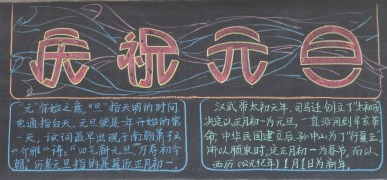 庆祝元旦
"元"有始之意,"旦"指天明的时间
也通指白天,元旦便是一年开始的第
一天,一词最早出现于南朝萧子云
《介雅》诗:"四气新元旦,万寿初今
朝"历来元旦指的是夏历正月初一。
汉武帝太初元年,司马迁创立了"太初历"
决定以正月初一为元旦,一直沿用到辛亥革
命,中华民国建立后,孙中山为了"行夏正,
所以顺农时,定正月初一为春节,而以
西历(公元纪年)1月1日为新年。